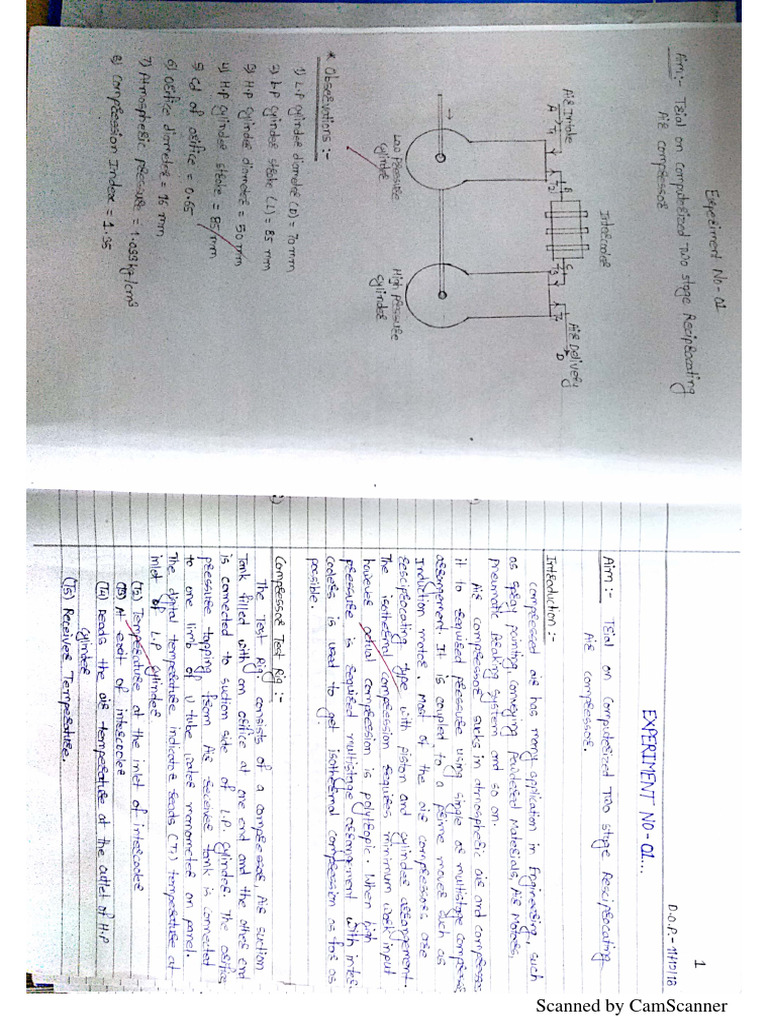 Experiment No-01
Aim:- Trial on computerized Two stage Reciprocating
Air compressor
Intercooler
Air Intake
A
T1
B
T2
C
T3
T4
Air Delivery
D
Low Pressure
cylinder
High Pressure
cylinder
* Observations :-
1) L.P cylinder diameter (D) = 70 mm
2) L.P cylinder stroke (L) = 85 mm
3) H.P cylinder diameter = 50 mm
4) H.P cylinder stroke = 85 mm
5) Cd of orifice = 0.65
6) Orifice diameter = 16 mm
7) Atmospheric pressure = 1.033 kg/cm²
8) Compression Index = 1.35
1
D.O.P:- 11/12/18
EXPERIMENT NO-01...
Aim:- Trial on Computerized Two stage Reciprocating
Air compressor.
Introduction :-
Compressed air has many application in Engineering, such
as spray painting, conveying powdered Materials, Air Motors,
pneumatic Braking system and so on.
Air compressor sucks in atmospheric air and compresses
it to required pressure using single or multistage compress
arrangement. It is coupled to a prime mover such as
induction motor. Most of the air compressors are
reciprocating type with piston and cylinder arrangement.
The isothermal compression requires minimum work input
however actual compression is polytropic. When high
pressure is required multistage arrangement with inter-
coolers is used to get isothermal compression as far as
possible.
Compressor Test Rig :-
The Test Rig consists of a compressor, Air suction
Tank filled with an orifice at one end and the other end
is connected to suction side of L.P. cylinder. The orifice
pressure tapping from Air receiver tank is connected
to one limb of U tube water manometer on panel.
The digital temperature indicator reads (T1) temperature at
inlet of L.P cylinder
(T2) Temperature at the inlet of intercooler
(T3) At exit of intercooler
(T4) Reads the air temperature at the outlet of H.P
cylinder
(T5) Receiver Temperature.
Scanned by CamScanner